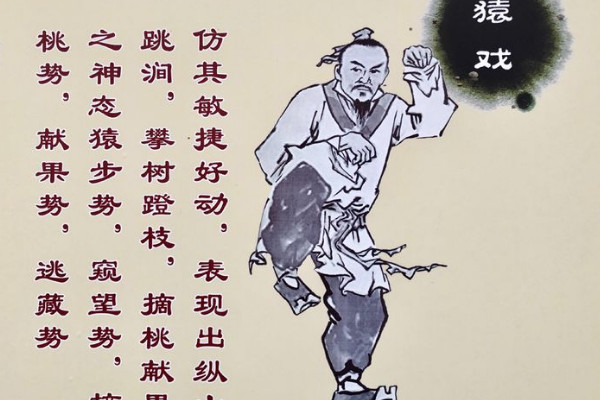 猿戏
仿其敏捷好动，表现出纵山
跳涧，攀树蹬枝，摘桃献果
之神态猿步势，窥望势，摘
桃势，献果势，逃藏势